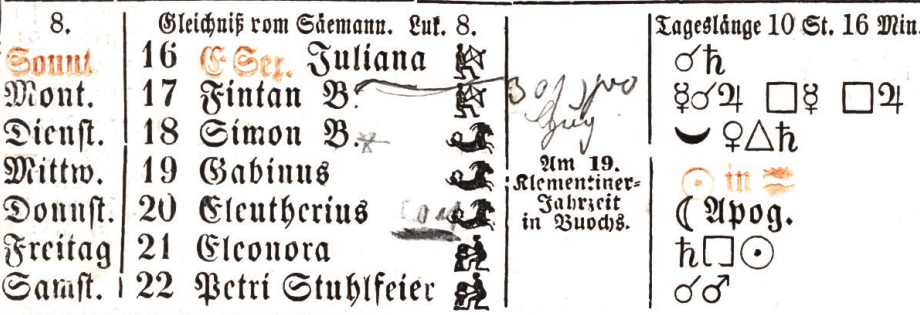 8. Gleichniß vom Säemann. Luk. 8. Tageslänge 10 St. 16 Min.
Sonnt. 16 E Sex. Juliana ☌♄
Mont. 17 Fintan B. ☿☌♃ □☿ □♃
Dienst. 18 Simon B. ♀△♄
Mittw. 19 Gabinus Am 19. ☉ in
Klementiner-
Donnst. 20 Eleutherius Jahrzeit ☾ Apog.
in Buochs.
Freitag 21 Eleonora ♄□☉
Samst. 22 Petri Stuhlfeier ☌♂